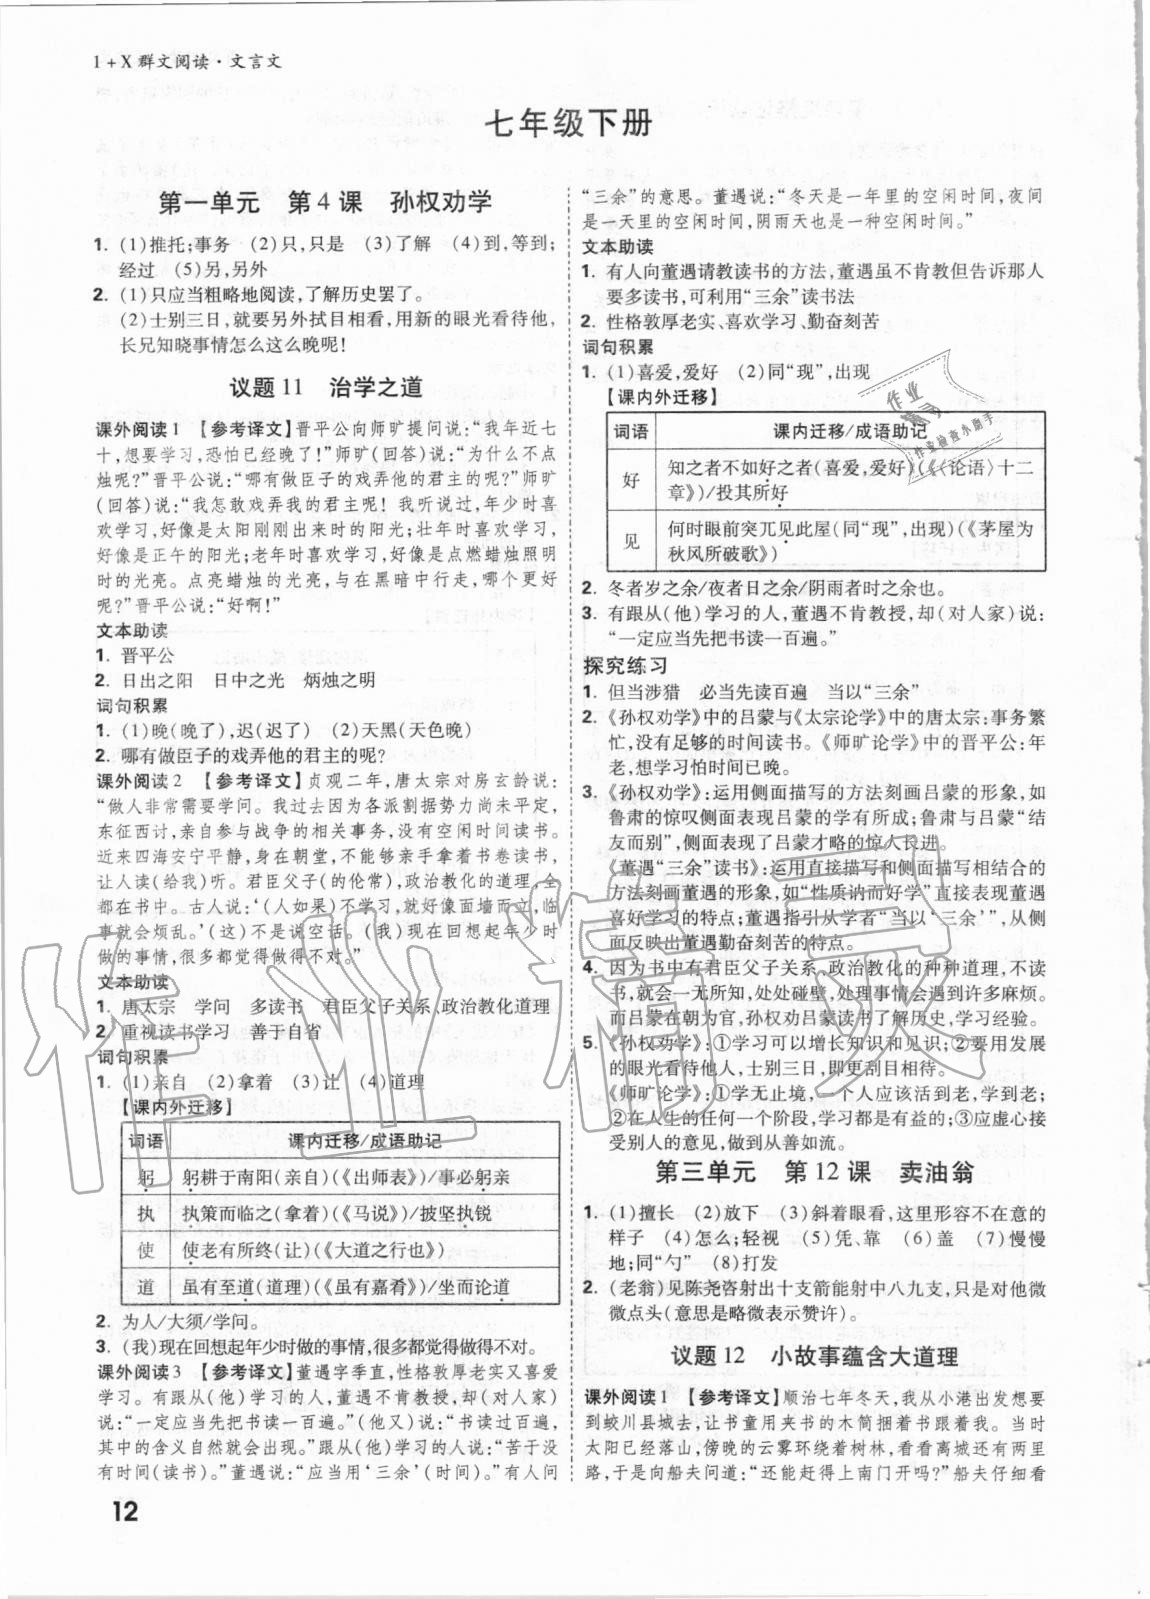 1+X群文阅读·文言文
七年级下册
第一单元 第4课 孙权劝学
1. (1)推托;事务 (2)只,只是 (3)了解 (4)到,等到;
经过 (5)另,另外
2. (1)只应当粗略地阅读,了解历史罢了。
(2)士别三日,就要另外拭目相看,用新的眼光看待他,
长兄知晓事情怎么这么晚呢!
议题11 治学之道
课外阅读1 【参考译文】晋平公向师旷提问说:“我年近七
十,想要学习,恐怕已经晚了!”师旷(回答)说:“为什么不点
烛呢?”晋平公说:“哪有做臣子的戏弄他的君主的呢?”师旷
(回答)说:“我怎敢戏弄我的君主呢!我听说过,年少时喜
欢学习,好像是太阳刚刚出来时的阳光;壮年时喜欢学习,
好像是正午的阳光;老年时喜欢学习,好像是点燃蜡烛照明
时的光亮。点亮蜡烛的光亮,与在黑暗中行走,哪个更好
呢?”晋平公说:“好啊!”
文本助读
1. 晋平公
2. 日出之阳 日中之光 炳烛之明
词句积累
1. (1)晚(晚了),迟(迟了) (2)天黑(天色晚)
2. 哪有做臣子的戏弄他的君主的呢?
课外阅读2 【参考译文】贞观二年,唐太宗对房玄龄说:
“做人非常需要学问。我过去因为各派割据势力尚未平定,
东征西讨,亲自参与战争的相关事务,没有空闲时间读书。
近来四海安宁平静,身在朝堂,不能够亲手拿着书卷读书,
让人读(给我)听。君臣父子(的伦常),政治教化的道理,全
都在书中。古人说:‘(人如果)不学习,就好像面墙而立,临
事就会烦乱。’(这)不是说空话。(我)现在回想起年少时做
做的事情,很多都觉得做得不对。”
文本助读
1. 唐太宗 学问 多读书 君臣父子关系、政治教化道理
2. 重视读书学习 善于自省
词句积累
1. (1)亲自 (2)拿着 (3)让 (4)道理
【课内外迁移】
词语 课内迁移/成语助记
躬 躬耕于南阳(亲自)(《出师表》)/事必躬亲
执 执策而临之(拿着)(《马说》)/披坚执锐
使 使老有所终(让)(《大道之行也》)
道 虽有至道(道理)(《虽有嘉肴》)/坐而论道
2. 为人/大须/学问。
3. (我)现在回想起年少时做的事情,很多都觉得做得不对。
课外阅读3 【参考译文】董遇字季直,性格敦厚老实又喜爱
学习。有跟从(他)学习的人,董遇不肯教授,却(对人家)
说:“一定应当先把书读一百遍。”(他又)说:“书读过百遍,
其中的含义自然就会出现。”跟从(他)学习的人说:“苦于没
有时间(读书)。”董遇说:“应当用‘三余’(时间)。”有人问
“三余”的意思。董遇说:“冬天是一年里的空闲时间,夜间
是一天里的空闲时间,阴雨天也是一种空闲时间。”
文本助读
1. 有人向董遇请教读书的方法,董遇虽不肯教但告诉那人
要多读书,可利用“三余”读书法
2. 性格敦厚老实、喜欢学习、勤奋刻苦
词句积累
1. (1)喜爱,爱好 (2)同“现”,出现
【课内外迁移】
词语 课内迁移/成语助记
好 知之者不如好之者(喜爱,爱好)(《〈论语〉十二
章》)/投其所好
见 何时眼前突兀见此屋(同“现”,出现)(《茅屋为
秋风所破歌》)
2. 冬者岁之余/夜者日之余/阴雨者时之余也。
3. 有跟从(他)学习的人,董遇不肯教授,却(对人家)说:
“一定应当先把书读一百遍。”
探究练习
1. 但当涉猎 必当先读百遍 当以“三余”
2. 《孙权劝学》中的吕蒙与《太宗论学》中的唐太宗:事务繁
忙,没有足够的时间读书。《师旷论学》中的晋平公:年
老,想学习怕时间已晚。
3. 《孙权劝学》:运用侧面描写的方法刻画吕蒙的形象,如
鲁肃的惊叹侧面表现吕蒙的学有所成;鲁肃与吕蒙“结
友而别”,侧面表现了吕蒙才略的惊人长进。
《董遇“三余”读书》:运用直接描写和侧面描写相结合的
方法刻画董遇的形象,如“性质讷而好学”直接表现董遇
喜好学习的特点;董遇指引从学者“当以‘三余’”,从侧
面反映出董遇勤奋刻苦的特点。
4. 因为书中有君臣父子关系、政治教化的种种道理,不读
书,就会一无所知,处处碰壁,处理事情会遇到许多麻烦。
而吕蒙在朝为官,孙权劝吕蒙读书了解历史,学习经验。
5. 《孙权劝学》:①学习可以增长知识和见识;②要用发展
的眼光看待他人,士别三日,即更刮目相看。
《师旷论学》:①学无止境,一个人应该活到老,学到老;
②在人生的任何一个阶段,学习都是有益的;③应虚心接
受别人的意见,做到从善如流。
第三单元 第12课 卖油翁
1. (1)擅长 (2)放下 (3)斜着眼看,这里形容不在意的
样子 (4)怎么;轻视 (5)凭、靠 (6)盖 (7)慢慢
地;同“勺” (8)打发
2. (老翁)见陈尧咨射出十支箭能射中八九支,只是对他微
微点头(意思是略微表示赞许)。
议题12 小故事蕴含大道理
课外阅读1 【参考译文】顺治七年冬天,我从小港出发想要
到蛟川县城去,让书童用夹书的木简捆着书跟着我。当时
太阳已经落山,傍晚的云雾环绕着树林,看看离城还有两里
路,于是向船夫问道:“还能赶得上南门开吗?”船夫仔细看
12
作业精灵
作业
作业检查小助手